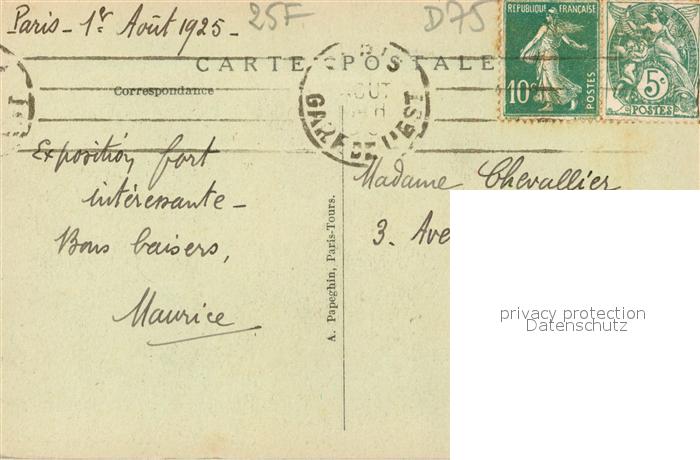 Paris - 1er Août 1925 -
25F
D75
RÉPUBLIQUE FRANÇAISE
10c
POSTES
5c
POSTES
CARTE POSTALE
Correspondance
PARIS
AOUT
GARE DE L'EST
Exposition fort
intéressante -
Bons baisers,
Maurice
A. Papeghin, Paris-Tours.
Madame Chevallier
3. Ave
privacy protection
Datenschutz